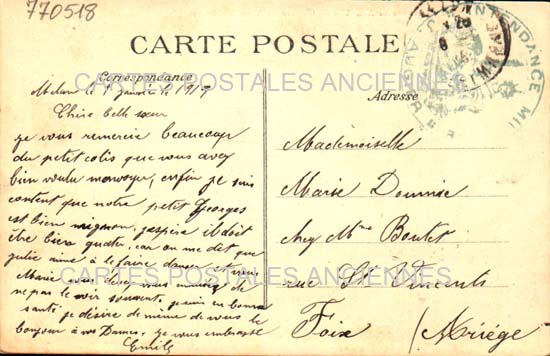 770518
CARTE POSTALE
Correspondance
Adresse
INTENDANCE MIL
CARTES POSTALES ANCIENNES
Melun le Janvier 1919
Chère belle sœur
je vous remercie beaucoup
du petit colis que vous avez
bien voulu m'envoyer, enfin je suis
content que notre petit Georges
est bien mignon, j'espère il doit
être bien, car on me dit que
julie aime à le faire danser
Marie vous devez vous
ne pas le voir souvent, je suis en bonne
santé je désire de même de vous le
bonjour à vos Dames. je vous embrasse
Emile
Mademoiselle
Marie
chez Mme Boutet
rue St Vincent
Foix (Ariège
CARTES POSTALES ANCIENNES